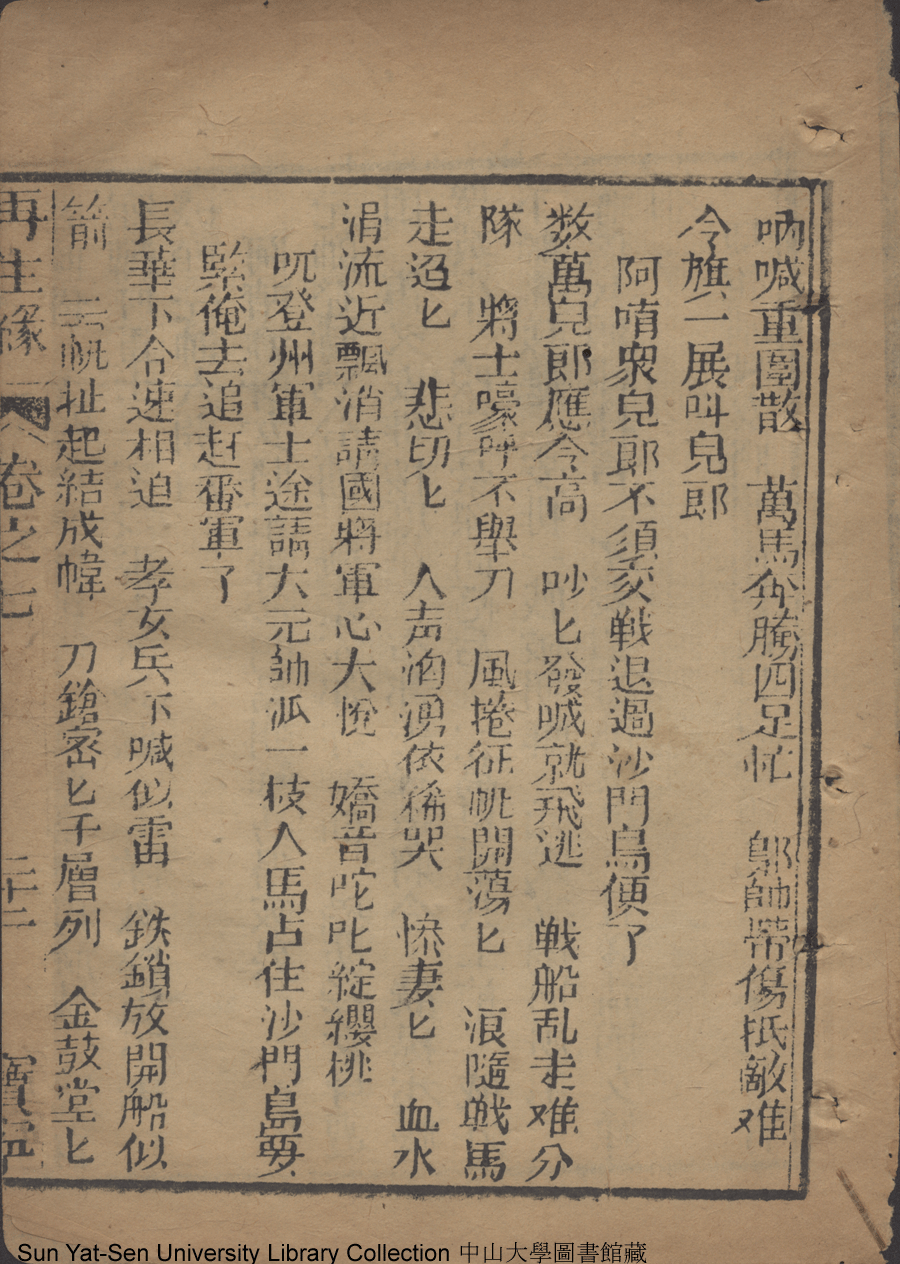 吶喊重圍散　萬馬奔騰四足忙　鄔帥帶傷抵敵难
今旗一展叫兒郎
阿唷衆兒郎不須交戰退過沙門島便了
数萬兒郎應今高　吵匕發喊就飛逃　戰船乱走难分
隊　將士嚎呼不舉刀　風捲征帆開蕩匕　浪隨戰馬
走迢匕　悲切匕　人声洶湧依稀哭　慘妻匕　血水
涓流近飄消請國將軍心大悅　嬌音咤叱綻纓桃
吭登州軍士途請大元帥派一枝人馬占住沙門島要
緊俺去追赶番軍了
長華下令速相迫　孝女兵下喊似雷　鉄鎖放開船似
箭　云帆扯起結成幃　刀鎗密匕千層列　金鼓堂匕
再生緣　卷之七　二十二　寶
Sun Yat-Sen University Library Collection 中山大學圖書館藏